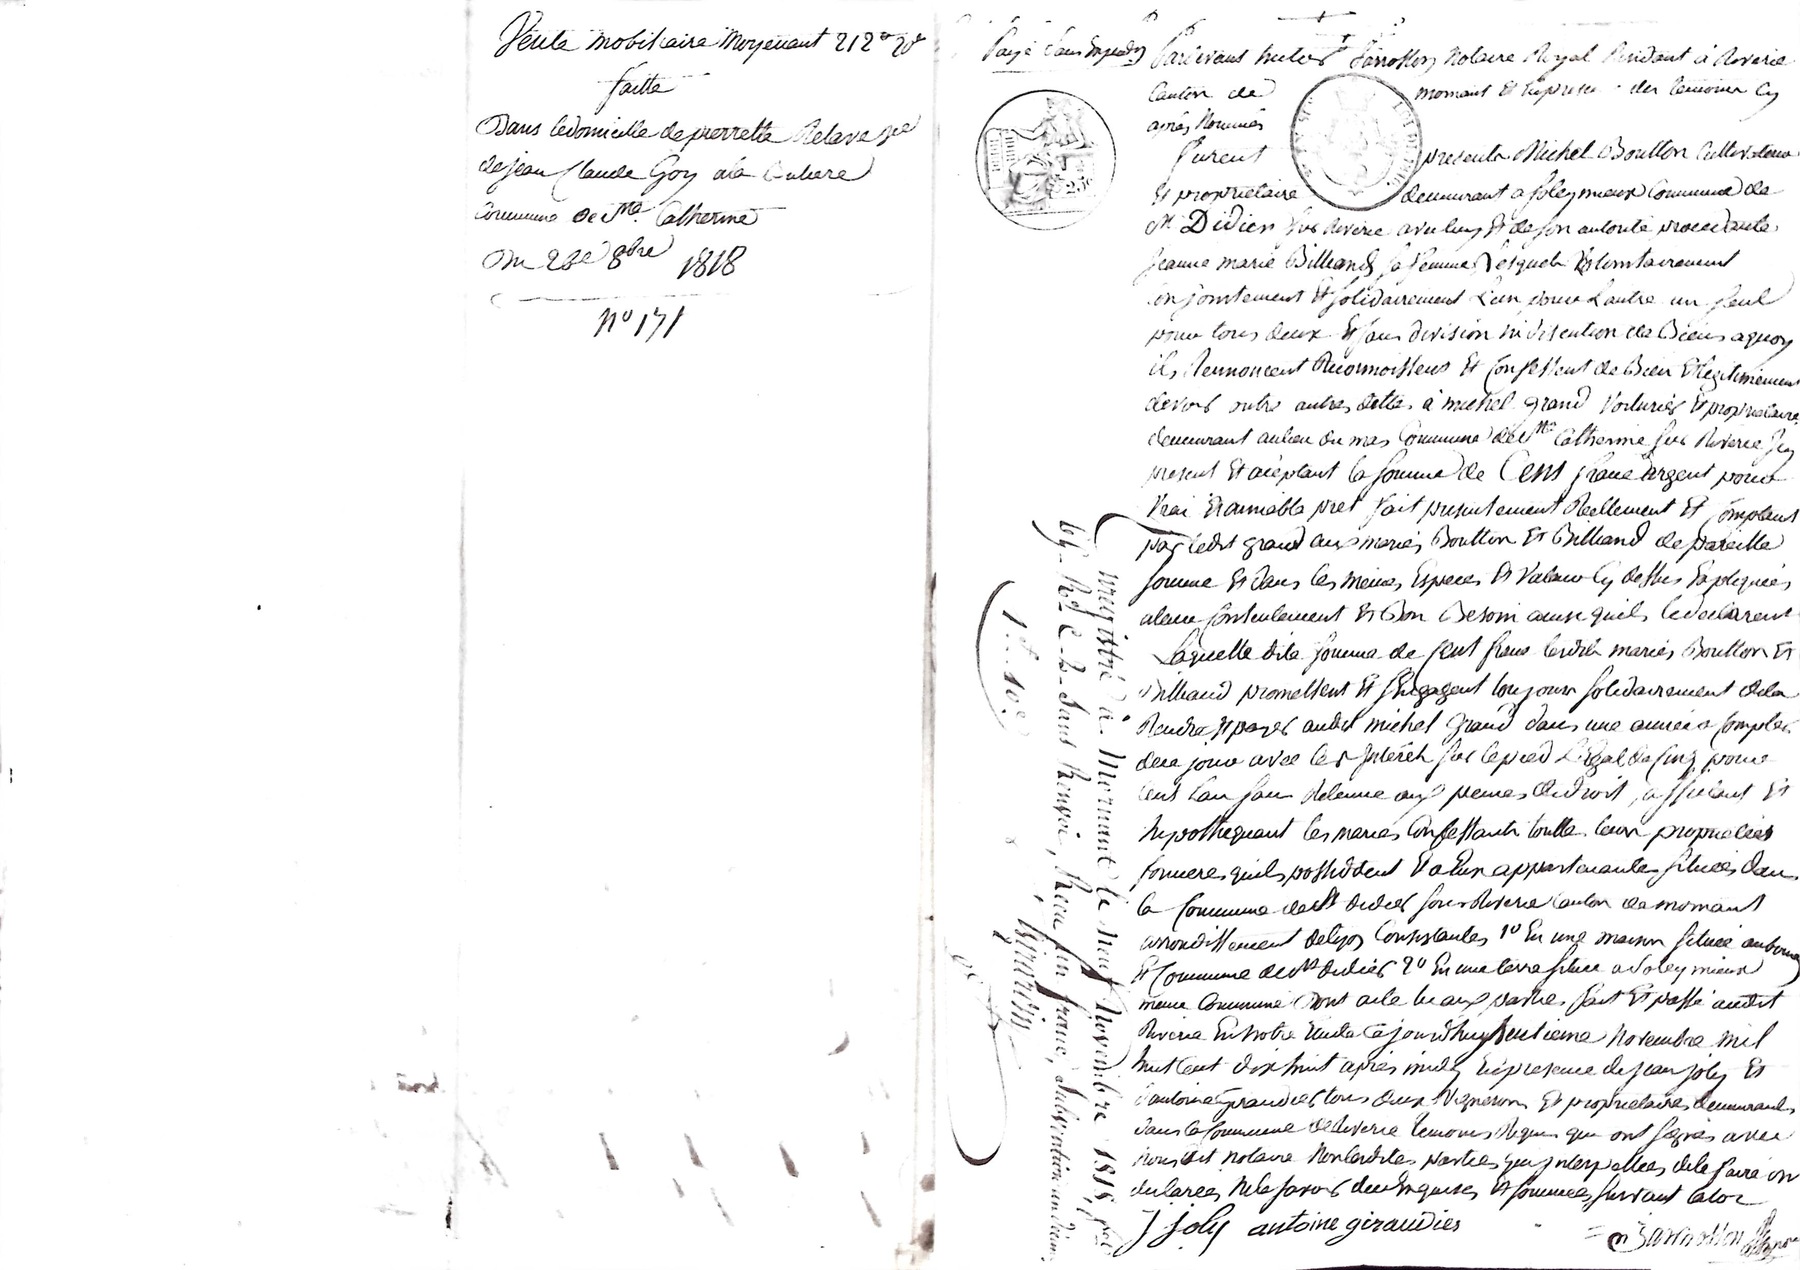 Vente mobiliaire moyenant 212 fr 70 c
faitte
Dans le domicile de pierrette Relave ve
de jean Claude Goy a la
Commune de Ste Catherine
Du 28e 8bre 1818
No 171
Pardevant notaire Royal Residant à Riverie
Canton de mornant Et En presence des temoins Cy
après Nommés
furent presents Michel Boutton Cultivateur
Et proprietaire demeurant a Soleymieux Commune de
St Didier sous Riverie avec luy Et de son autorité procedante
Jeanne marie Billiand sa femme Lesquels Volontairement
Conjointement Et solidairement L'un pour L'autre un seul
pour tous deux Et sans division ni discution de Biens a quoy
ils Rennoncent Reconnoissent Et Confessent de Bien Et légitimement
devoir outre autres dettes à michel grand Voiturier Et proprietaire
demeurant au lieu du mas Commune de Ste Catherine sur Riverie Icy
present Et acceptant la somme de Cent francs argent pour
Vrai Et amiable pret fait presentement Reellement Et Comptant
par ledit grand aux mariés Boutton Et Billiand de pareille
somme Et dans les mêmes Especes Et Valeur Cy dessus Expliquées
a leur Contentement Et Bon Besoin ainsi quils le declarent
Laquelle dite somme de Cent francs lesdits mariés Boutton Et
Billiand promettent Et s'Engagent toujours solidairement de la
Rendre Et payer audit michel grand dans une année a Compter
de ce jour avec les Interêts sur le pied Légal de Cinq pour
Cent L'an sans Retenue aux peines de droit, affectant Et
hypothequant les mariés Confessants toutte leurs proprietés
foncieres quils possedent Et a Eux appartenantes situées dans
la Commune de St didier sous Riverie Canton de mornant
arrondissement de Lyon Consistantes 1o En une maison située au bourg
Et Commune de St didier 2o En une terre située a Soleymieux
meme Commune Dont acte Lu aux parties, fait Et passé audit
Riverie En notre Etude Ce jourd'huy huitieme Novembre mil
huit Cent dix huit après midy En presence de Jean joly Et
d'antoine giraudier tous deux Vignerons Et proprietaires demeurants
dans la Commune de Riverie temoins Requis qui ont signés avec
Nous dit notaire Non lesdites parties qui Interpellées de le faire on
declarées Ne le savoir de ce Enquises Et sommées suivant la loi
J joly antoine giraudier
Enregistré à Mornant le neuf Novembre 1818,
C. 2. Sans Renvoi, Reçu un franc, Subvention un dixieme
1 f. 10 c